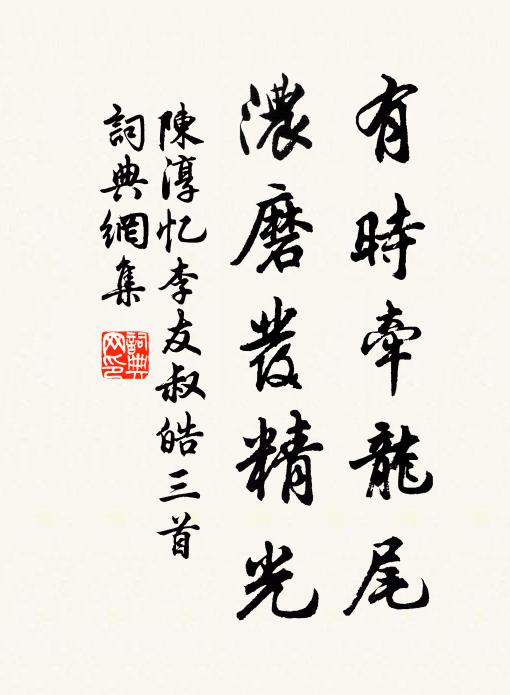 有時牽龍尾
濃磨發精光
陳淳忆李友叔皓三首
詞典網集
詞典網印